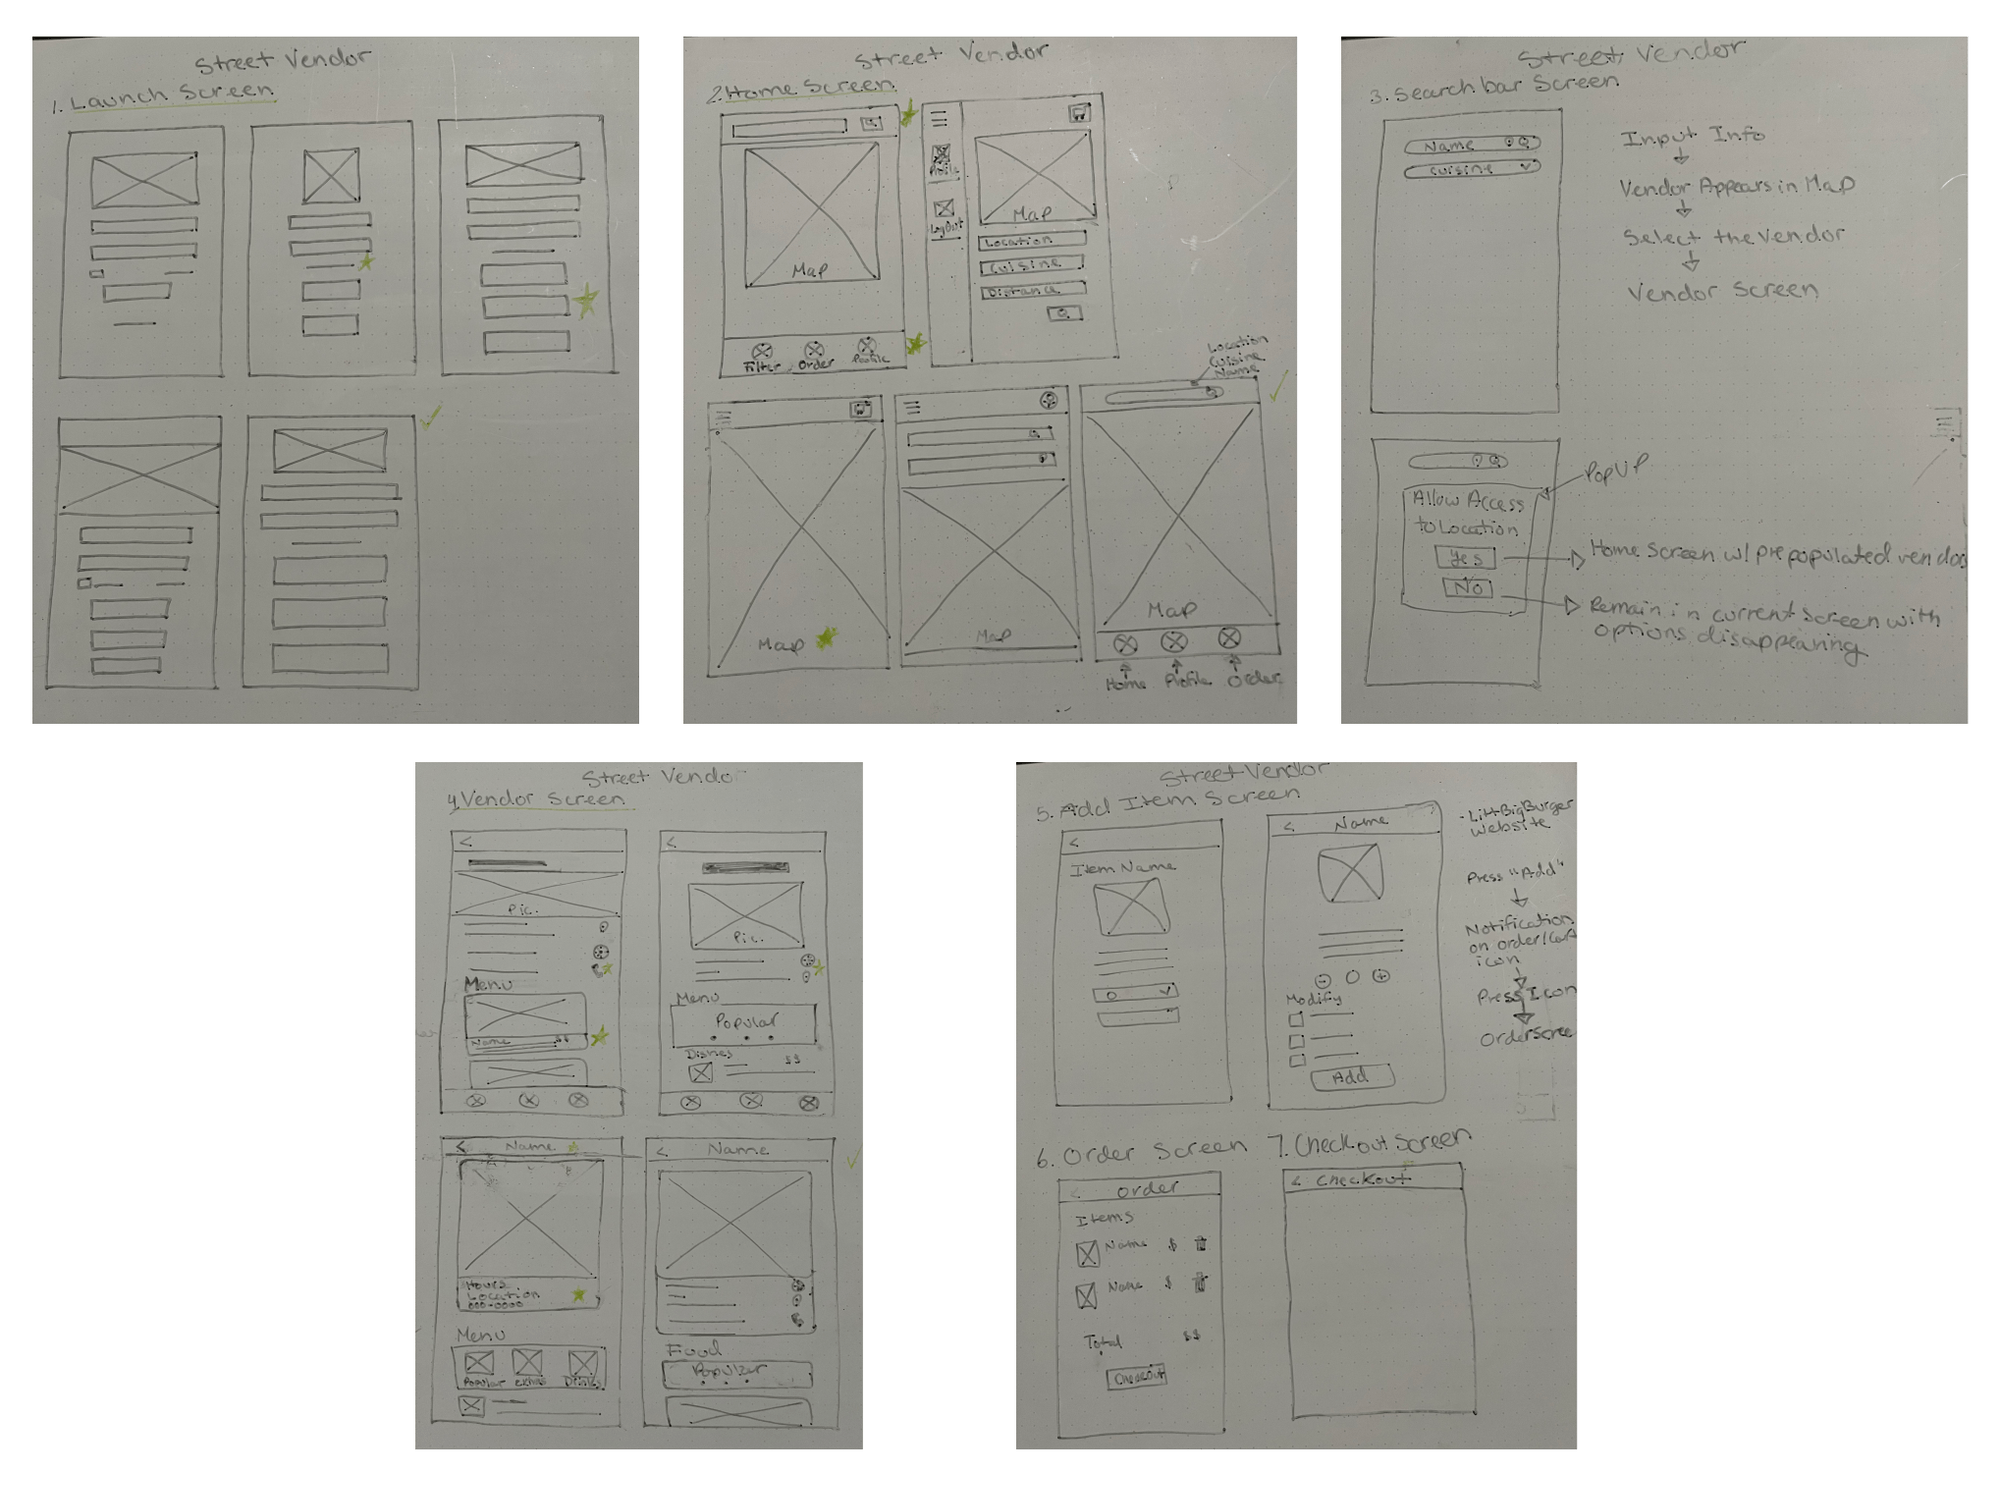 Street Vendor
1. Launch Screen
Street Vendor
2. Home Screen
Map
Filter
Order
Profile
Profile
Log Out
Map
Location
Cuisine
Distance
Map
Map
Location
Cuisine
Name
Map
Home
Profile
Order
Street Vendor
3. Search bar Screen
Name
Cuisine
Input Info
Vendor Appears in Map
Select the Vendor
Vendor Screen
PopUP
Allow Access
to Location
Yes
No
Home Screen w/ prepopulated vendor
Remain in current screen with
options disappearing
Street Vendor
4. Vendor Screen
Pic.
Menu
Name $$
Pic.
Menu
Popular
Dishes $$
< Name
Hours
Location
000-0000
Menu
Popular
Extras
Drinks
< Name
Food
Popular
Street Vendor
5. Add Item Screen
<
Item Name
< Name
Modify
Add
Website
Press "Add"
Notification
on order/Cart
icon
Press Icon
6. Order Screen
< Order
Items
Name $
Name $
Total $$
Checkout
7. Checkout Screen
< Checkout